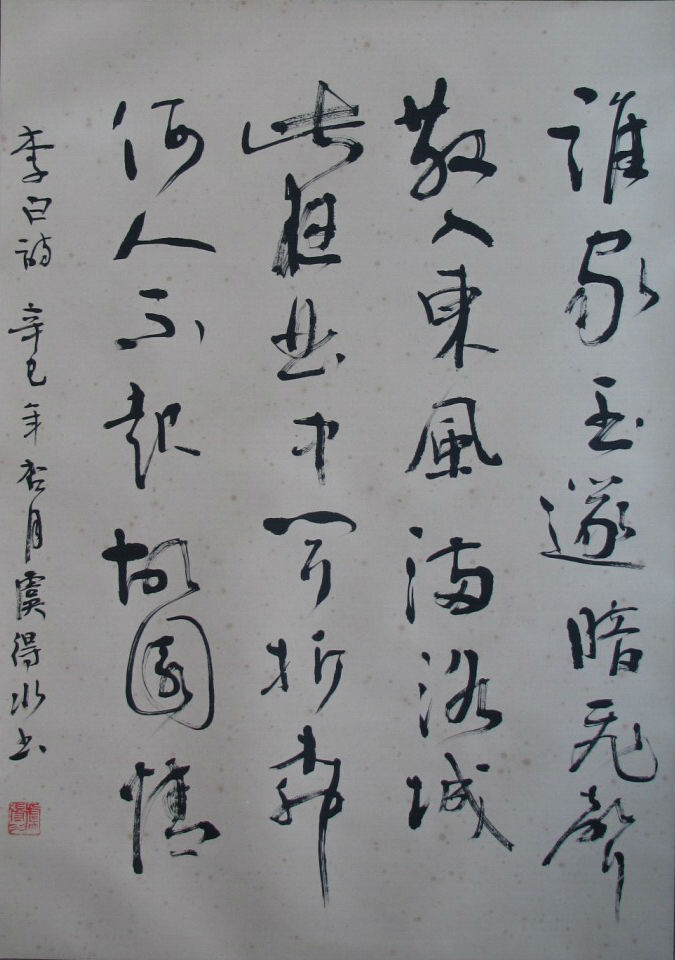 誰家玉篴暗飛聲
散入東風滿洛城
此夜曲中聞折柳
何人不起故園情
李白詩 辛巳年杏月虞得水书